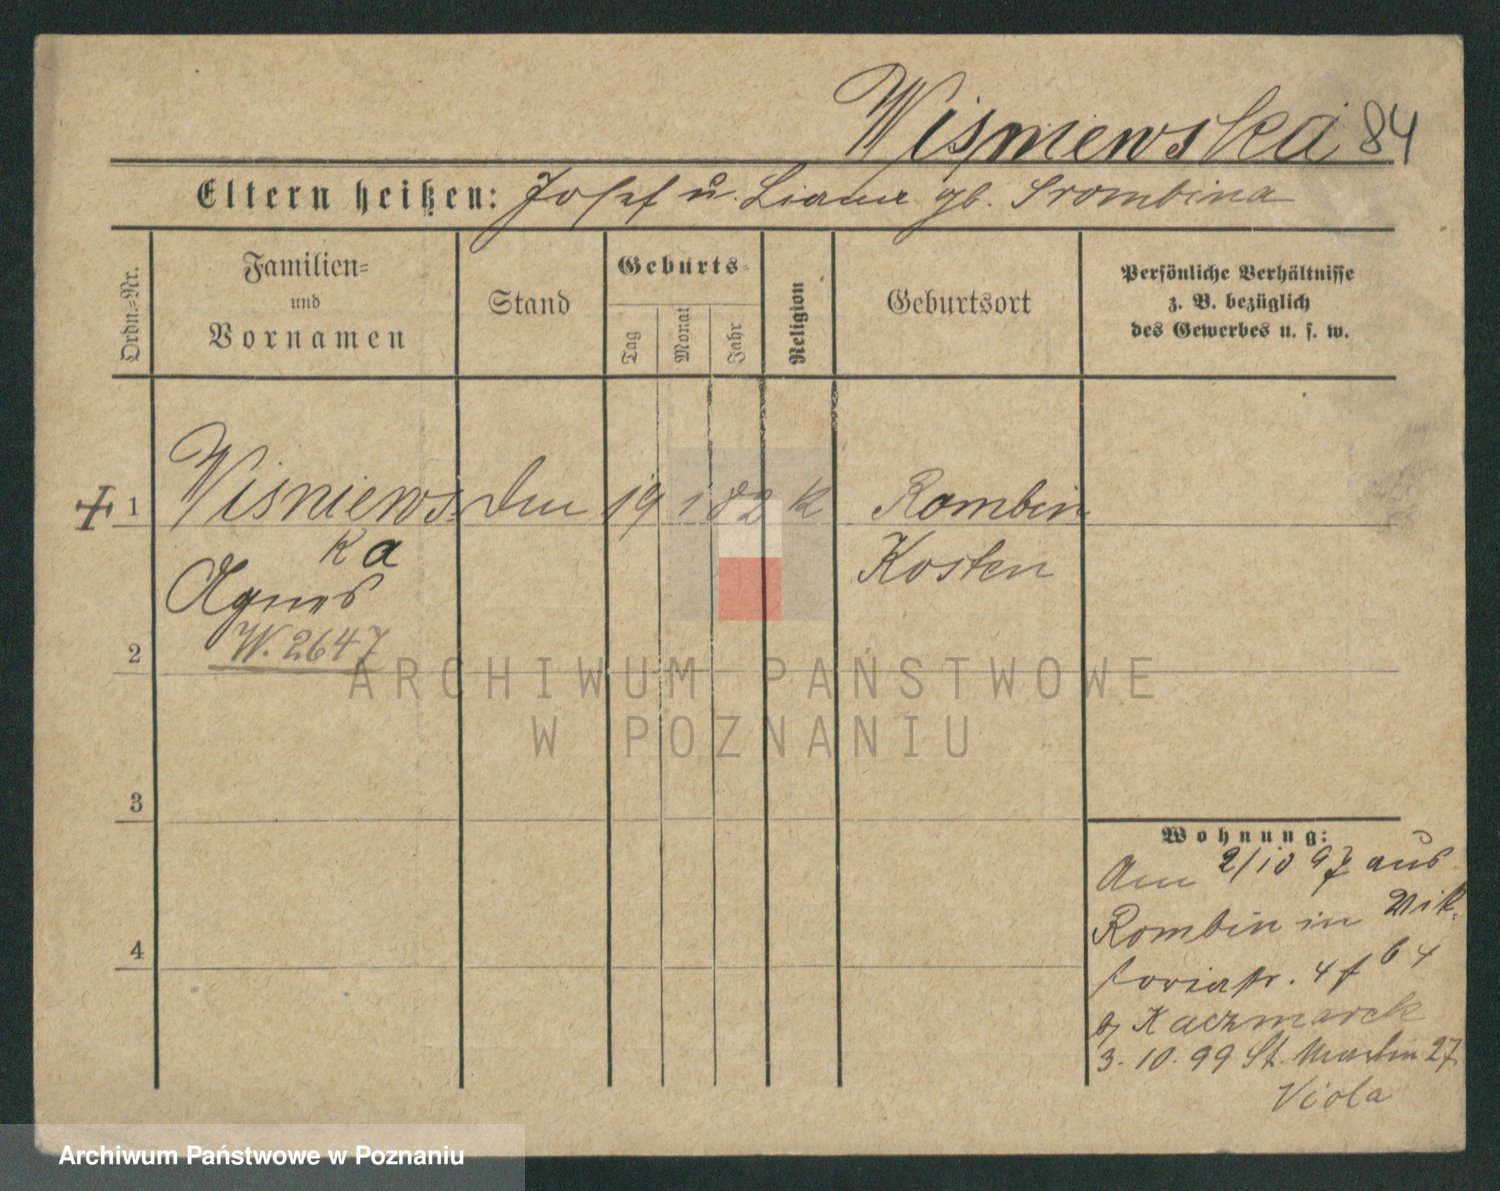 Wiśniewska 84
Eltern heißen: Josef u. gb.
Ordn.-Nr.
Familien-
und
Vornamen
Stand
Geburts-
Tag
Monat
Jahr
Religion
Geburtsort
Persönliche Verhältnisse
z. B. bezüglich
des Gewerbes u. s. w.
1 Wisniews- 19 1 82 k Rombin
ka Kosten
Agnes
2 W. 2647
ARCHIWUM PAŃSTWOWE
W POZNANIU
3
4
Wohnung:
Am 2/10 97 aus
Rombin in Vik-
toriastr.
Kaczmarek
3. 10. 99 St. Martin 27
Viola
Archiwum Państwowe w Poznaniu